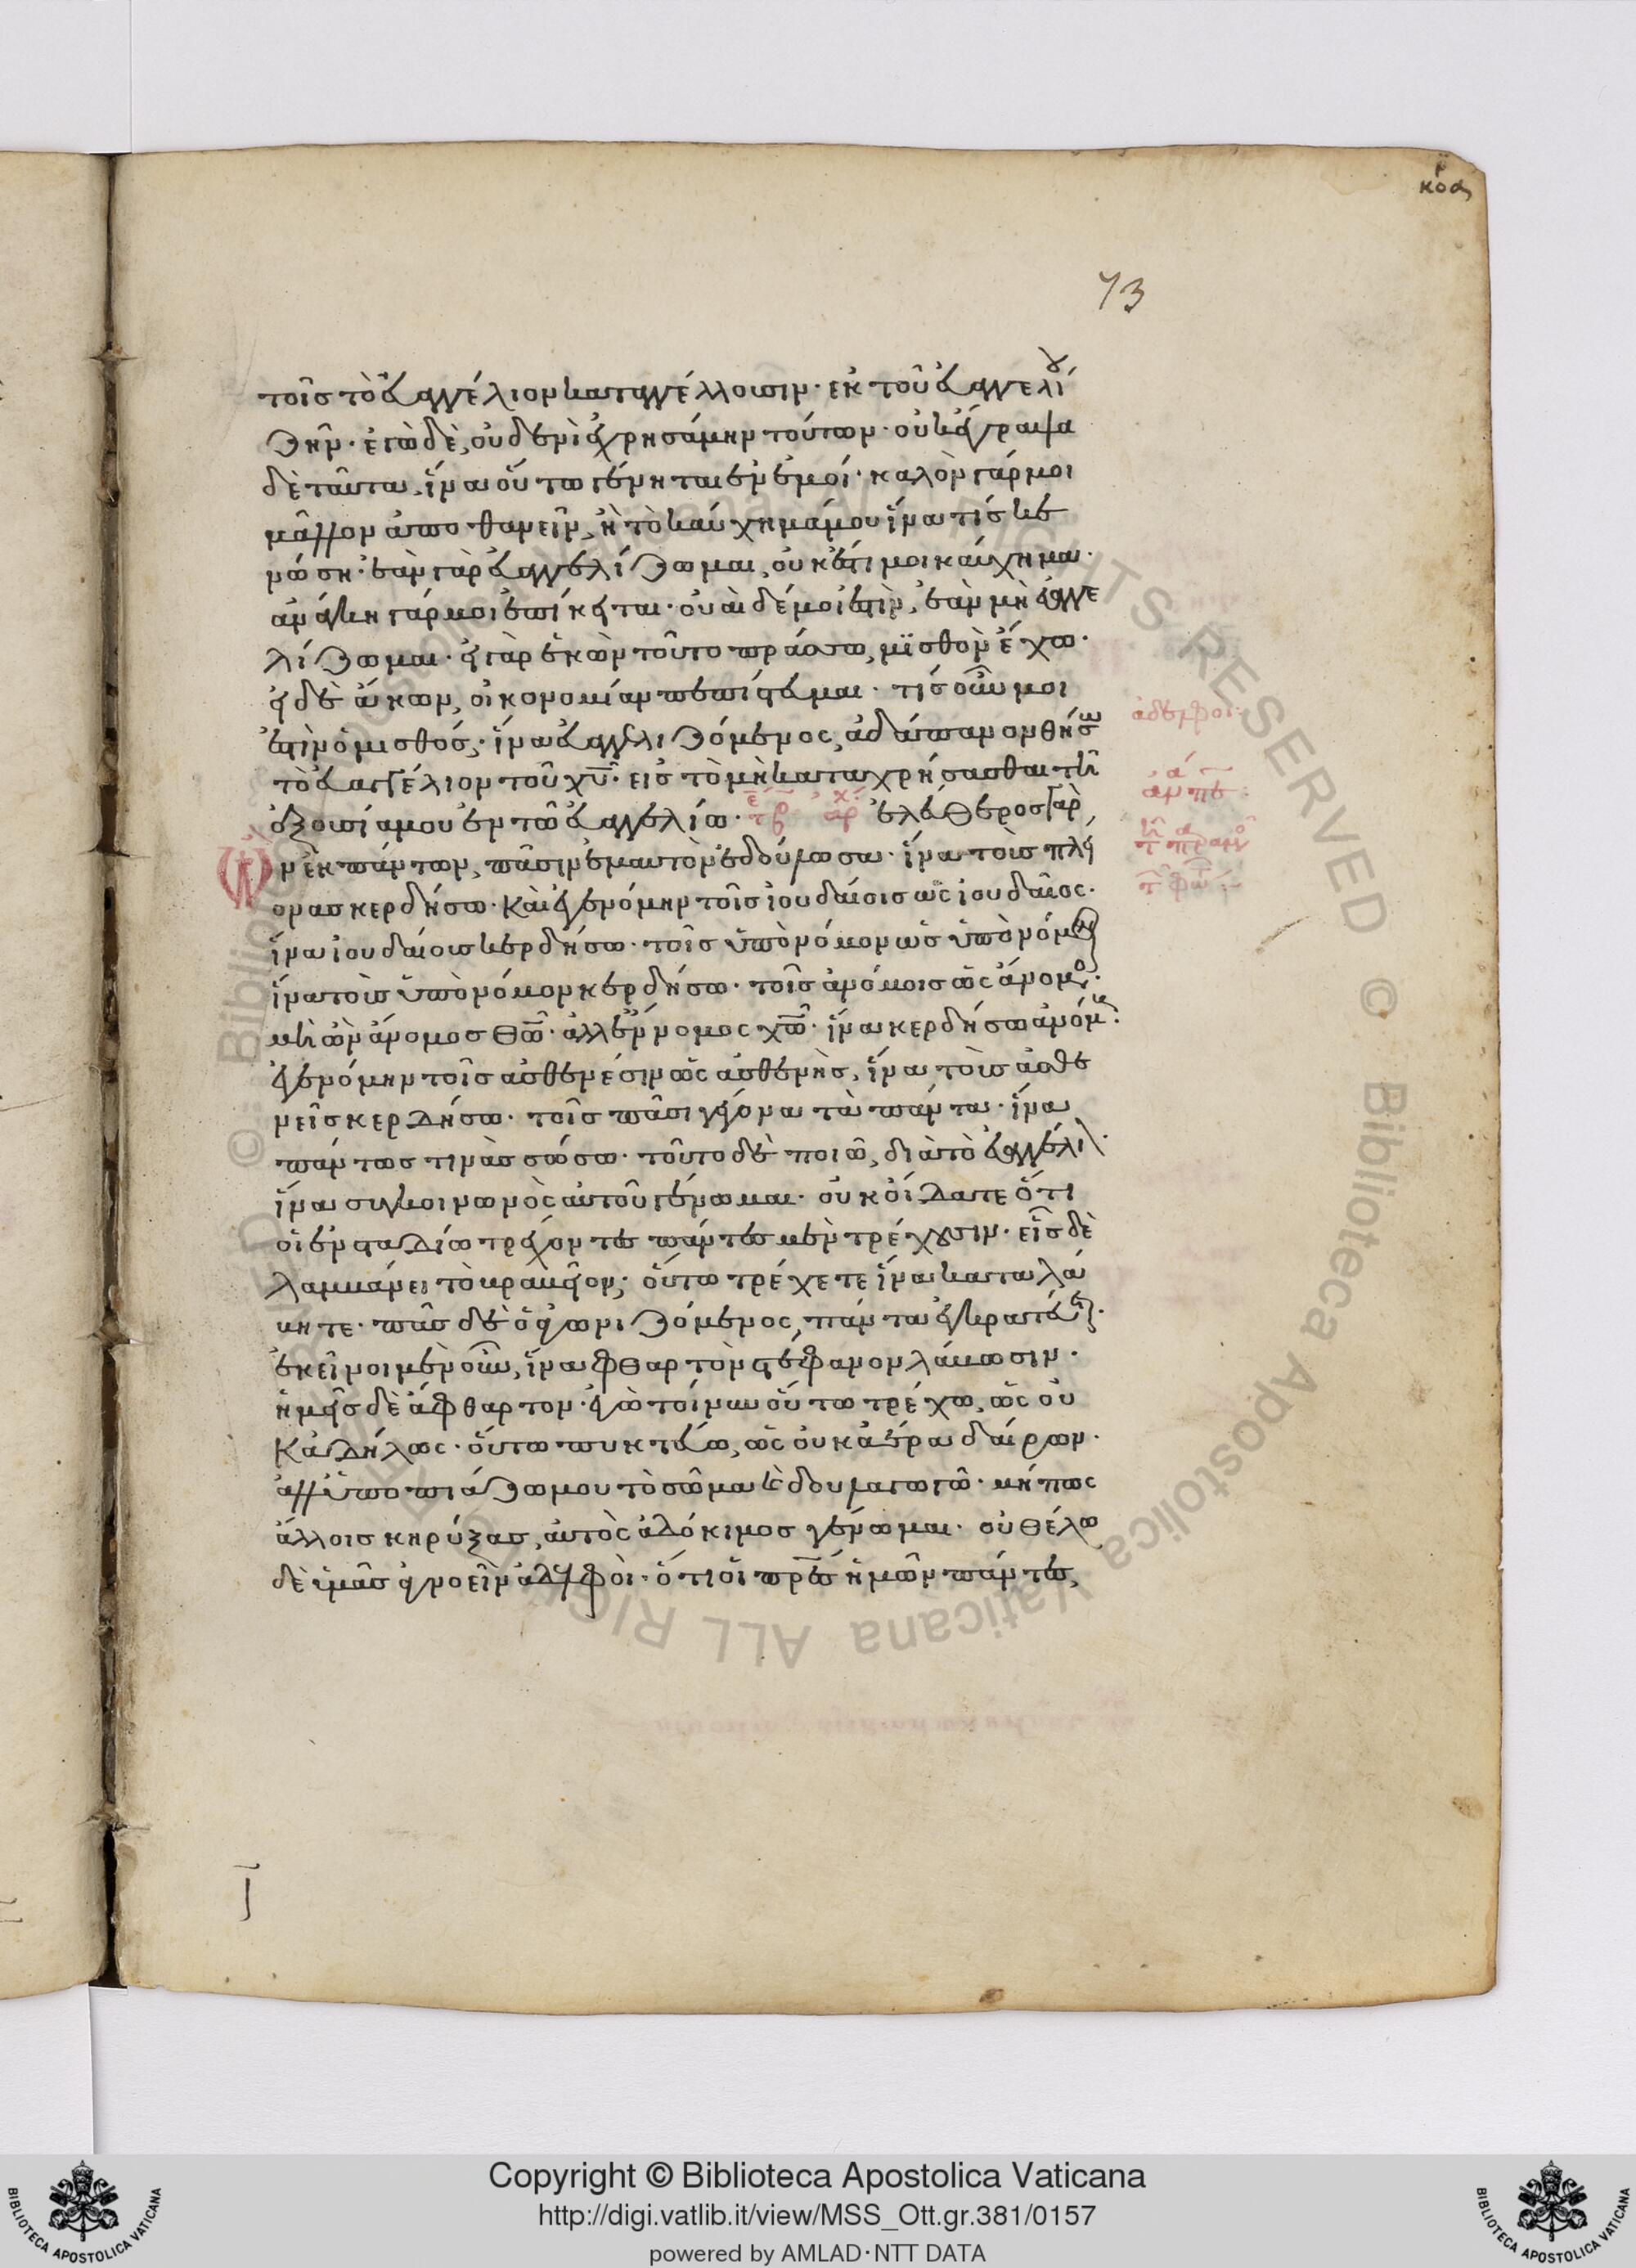 κδα
73
τοῖσ τὸ εὐαγγέλιον καταγγέλλουσιν· ἐκ τοῦ εὐαγγελίου
ζῆν· ἐγὼ δὲ, οὐδενὶ ἐχρησάμην τούτων· οὐκ ἔγραψα
δὲ ταῦτα, ἵνα οὕτω γένηται ἐν ἐμοί· καλὸν γάρ μοι
μᾶλλον ἀποθανεῖν, ἢ τὸ καύχημά μου ἵνα τίς κε
νώση· ἐὰν γὰρ εὐαγγελίζωμαι, οὐκ ἔστι μοι καύχημα·
ἀνάγκη γάρ μοι ἐπίκειται· οὐαὶ δέ μοι ἐστὶν, ἐὰν μὴ εὐαγγε
λίζωμαι· εἰ γὰρ ἑκὼν τοῦτο πράσσω, μϊσθὸν ἔχω·
εἰ δὲ ἄκων, οἰκονομίαν πεπίστευμαι· τίσ οὖν μοι
ἐστὶν ὁ μισθός· ἵνα εὐαγγελιζόμενος, ἀδάπανον θήσω
τὸ εὐαγγέλιον τοῦ χυ· εἰσ τὸ μὴ καταχρήσασθαι τῆ
ἐξουσία μου ἐν τῶ εὐαγγελίω· ἐλεύθεροσ γὰρ
ὢν ἐκ πάντων, πᾶσιν ἐμαυτὸν ἐδούλωσα· ἵνα τοὺσ πλεί
ονασ κερδήσω· Καὶ ἐγενόμην τοῖσ ἰουδαίοισ ὡς ἰουδαῖος·
ἵνα ἰουδαίουσ κερδήσω· τοῖσ ὑπὸ νόμον ὡς ὑπὸ νόμον
ἵνα τοὺσ ὑπὸ νόμον κερδήσω· τοῖσ ἀνόμοισ ὡς ἄνομος·
μὴ ὢν ἄνομοσ θω· ἀλλ' ἔννομος χω· ἵνα κερδήσω ἀνόμους·
ἐγενόμην τοῖσ ἀσθενέσιν ὡς ἀσθενὴσ, ἵνα τοὺσ ἀσθε
νεῖσ κερδήσω· τοῖσ πᾶσι γέγονα τὰ πάντα· ἵνα
πάντωσ τινὰσ σώσω· τοῦτο δὲ ποιῶ, διὰ τὸ εὐαγγέλι·
ἵνα συγκοινωνὸς αὐτοῦ γένωμαι· οὐκ οἴδατε ὅτι
οἱ ἐν σταδίω τρέχοντεσ πάντεσ μὲν τρέχουσιν· εἷσ δὲ
λαμβάνει τὸ βραβεῖον; οὕτω τρέχετε ἵνα καταλά
βητε· πᾶσ δὲ ὁ ἀγωνιζόμενος, πάντα ἐγκρατεύεται·
ἐκεῖνοι μὲν οὖν, ἵνα φθαρτὸν στέφανον λάβωσιν·
ἡμεῖσ δὲ ἄφθαρτον· ἐγὼ τοίνυν οὕτω τρέχω, ὡς οὐ
Κ ἀδήλως· οὕτω πυκτεύω, ὡς οὐκ ἀέρα δαίρων·
ἀλλ' ὑποπιάζω μου τὸ σῶμα καὶ δουλαγωγῶ· μήπως
ἄλλοισ κηρύξασ, αὐτὸς ἀδόκιμοσ γένωμαι· οὐ θέλω
δὲ ὑμᾶσ ἀγνοεῖν ἀδελφοὶ· ὅτι οἱ πρεσ ἡμῶν πάντεσ,
ἀδελφοι·
Copyright © Biblioteca Apostolica Vaticana
http://digi.vatlib.it/view/MSS_Ott.gr.381/0157
powered by AMLAD·NTT DATA
BIBLIOTECA APOSTOLICA VATICANA
BIBLIOTECA APOSTOLICA VATICANA